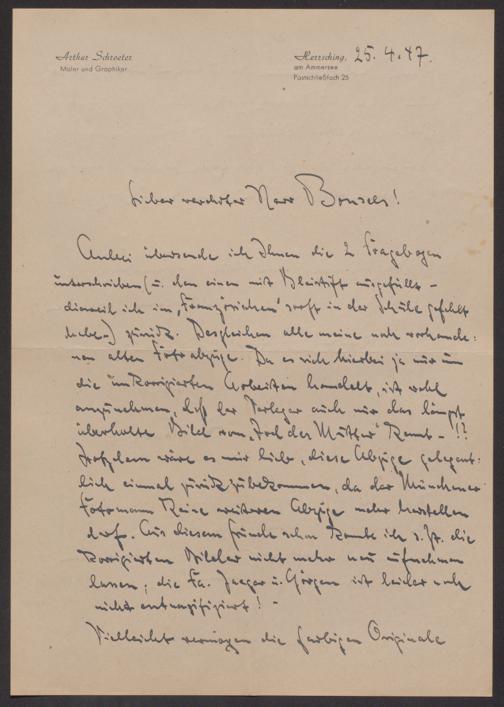 Arthur Schroeter
Maler und Graphiker
Herrsching, 25.4.47.
am Ammersee
Postschließfach 25
Lieber verehrter Herr Bonsels!
Anbei übersende ich Ihnen die 2 Fragebogen
unterschrieben (u. den einen mit Bleistift ausgefüllt –
dieweil ich im „Französischen" oft in der Schule gefehlt
habe –) zurück. Desgleichen alle meine noch vorhande-
nen alten Fotoabzüge. Da es sich hierbei ja nur um
die unkorrigierten Arbeiten handelt, ist wohl
anzunehmen, daß der Verleger auch nur das längst
überholte Bild vom „Tod des Mutter" kennt – !?
Trotzdem wäre es mir lieb, diese Abzüge gelegent-
lich einmal zurückzubekommen, da der Münchener
Fotomann keine weiteren Abzüge mehr herstellen
darf. Aus diesem Grunde schon konnte ich s. Zt. die
korrigierten Bilder nicht mehr neu aufnehmen
lassen; die Fa. Jaeger u. Görgen ist leider noch
nicht entnazifiziert! –
Vielleicht vermögen die farbigen Originale